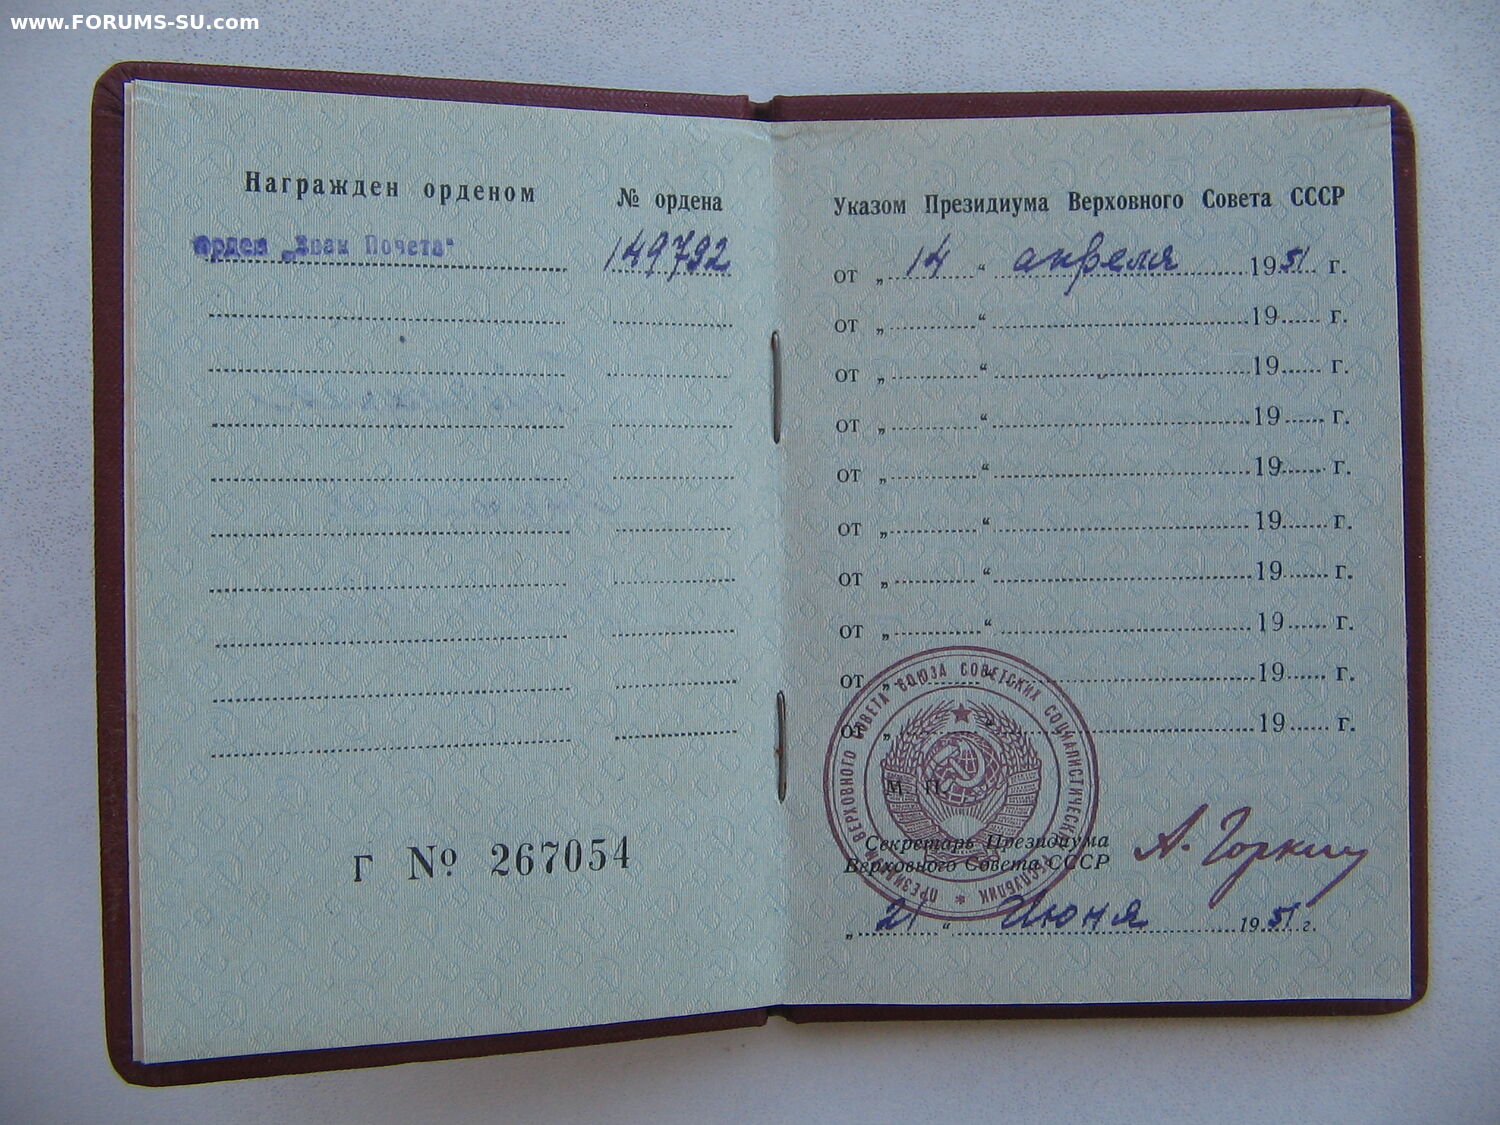 www.FORUMS-SU.com
Награжден орденом
№ ордена
Орден „Знак Почета"
149792
Г № 267054
Указом Президиума Верховного Совета СССР
от „ 14 “ апреля 1951 г.
от „ “ 19 г.
от „ “ 19 г.
от „ “ 19 г.
от „ “ 19 г.
от „ “ 19 г.
от „ “ 19 г.
от „ “ 19 г.
от „ “ 19 г.
от „ “ 19 г.
ПРЕЗИДИУМ ВЕРХОВНОГО СОВЕТА СОЮЗА СОВЕТСКИХ СОЦИАЛИСТИЧЕСКИХ РЕСПУБЛИК
М. П.
Секретарь Президиума
Верховного Совета СССР
А. Горкин
„ 21 “ Июня 1951 г.